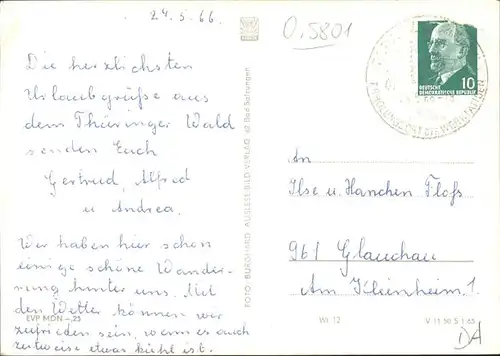 24.5.66.
0,5801
Die herzlichsten
Urlaubgrüße aus
dem Thüringer Wald
senden Euch
Gertrud, Alfred
u Andrea.
Wir haben hier schon
einige schöne Wande-
rung hinter uns. Mit
den Wetter können wir
zufrieden sein, wenn es auch
zeitweise etwas kühl ist.
EVP MDN -,25
FOTO: BURGHARD AUSLESE-BILD-VERLAG 62 Bad Salzungen
10
DEUTSCHE
DEMOKRATISCHE REPUBLIK
ERHOLUNGSORT DER WERKTÄTIGEN
An
Ilse u. Hanchen Floß
961 Glauchau
Am Kleinheim 1
WI 12
V 11 50 S 1/65